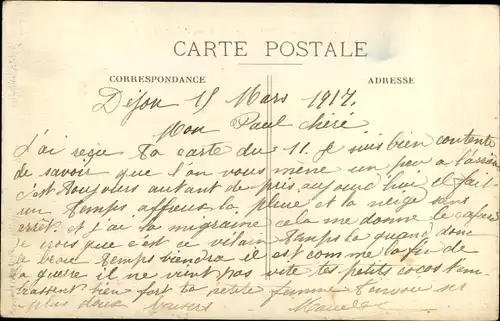 CARTE POSTALE
CORRESPONDANCE
ADRESSE
Dijon 15 Mars 1917.
Mon Paul chéré
J'ai reçu ta carte du 11. Je suis bien contente
de savoir que l'on vous mène un peu a l'arrière
c'est toujours autant de pris, aujourd'hui il fait
un temps affreux la pluie et la neige sans
arrêt, et j'ai la migraine cela me donne le cafard
je crois que c'est ce vilain temps la quand donc
le beau temps viendra il est comme la fin de
la guerre il ne vient pas vite tes petits cocos t'em
brassent bien fort ta petite femme t'envoie ses
plus doux baisers